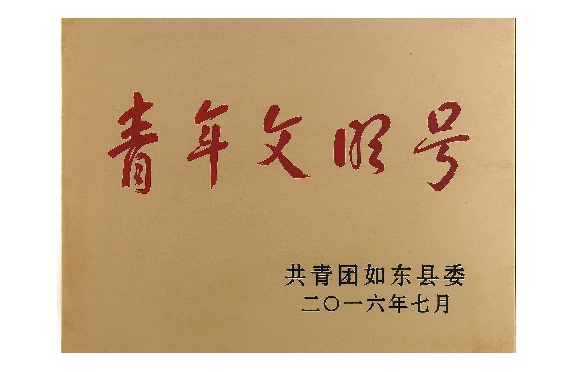 青年文明号
共青团如东县委
二〇一六年七月